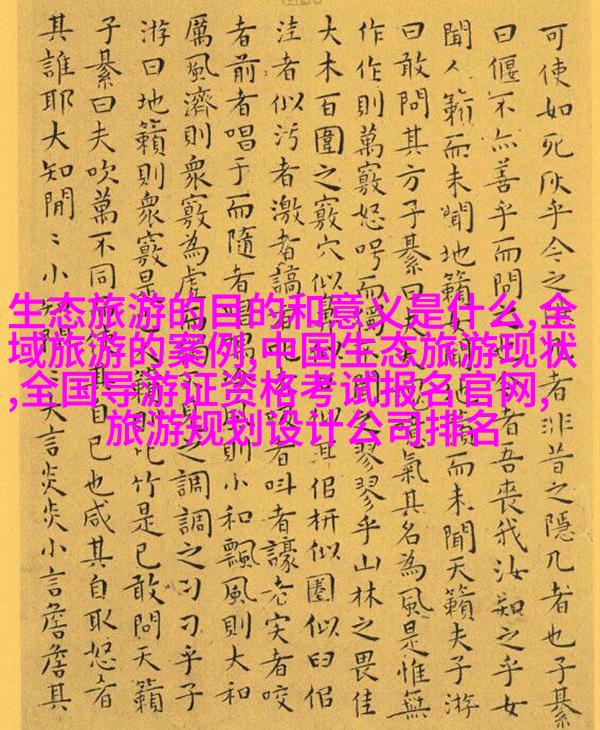 生态旅游的目的和意义是什么,全
域旅游的案例,中国生态旅游现状
,全国导游证资格考试报名官网,
旅游规划设计公司排名
可使如死灰乎今之隱者非昔之隱几者也子綦
曰偃不亦善乎而問之者吾喪我汝知之乎女
聞人籟而未聞地籟女聞地籟而未聞天籟夫子游
曰敢問其方子綦曰夫大氣其名為風是惟無
作作則萬竅怒呺而獨翏翏乎山林之畏佳
大木百圍之竅穴似鼻似侣枅似圈似臼侣
洼者似污者激者謞者吸者叫者譹者宎者咬
者前者唱于而隨者唱喁泠風則小和飄風則大和
厲風濟則眾竅為虛而獨不見之調調之刁刁乎子
游曰地籟則眾竅是籟則比竹是已敢問天籟
子綦曰夫吹萬不同使其自己也咸其自取怒者
其誰耶大知閒〻小知閒〻大言炎炎小言詹詹其